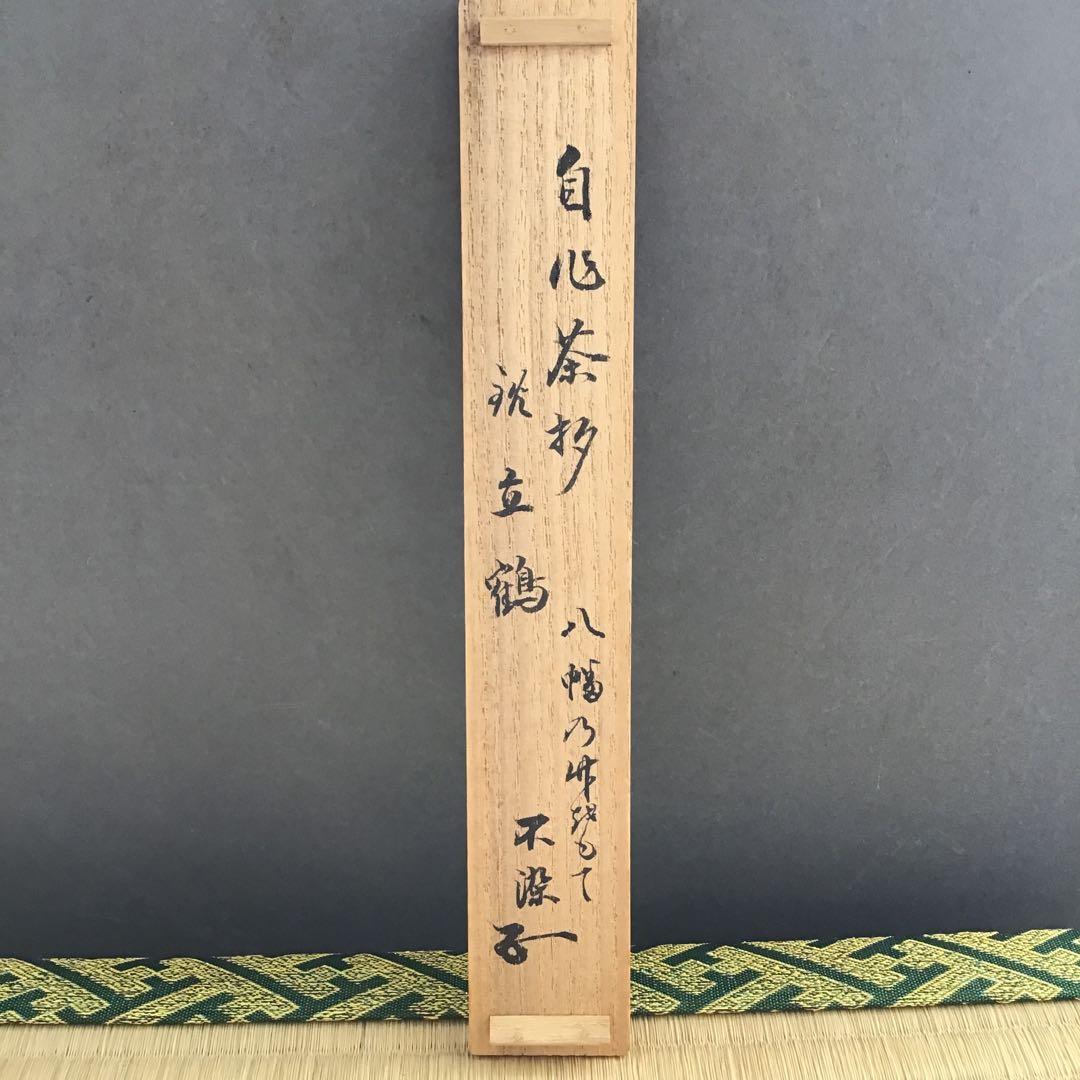 自作茶杓
銘 立鶴
八幡乃竹をもて
不染子